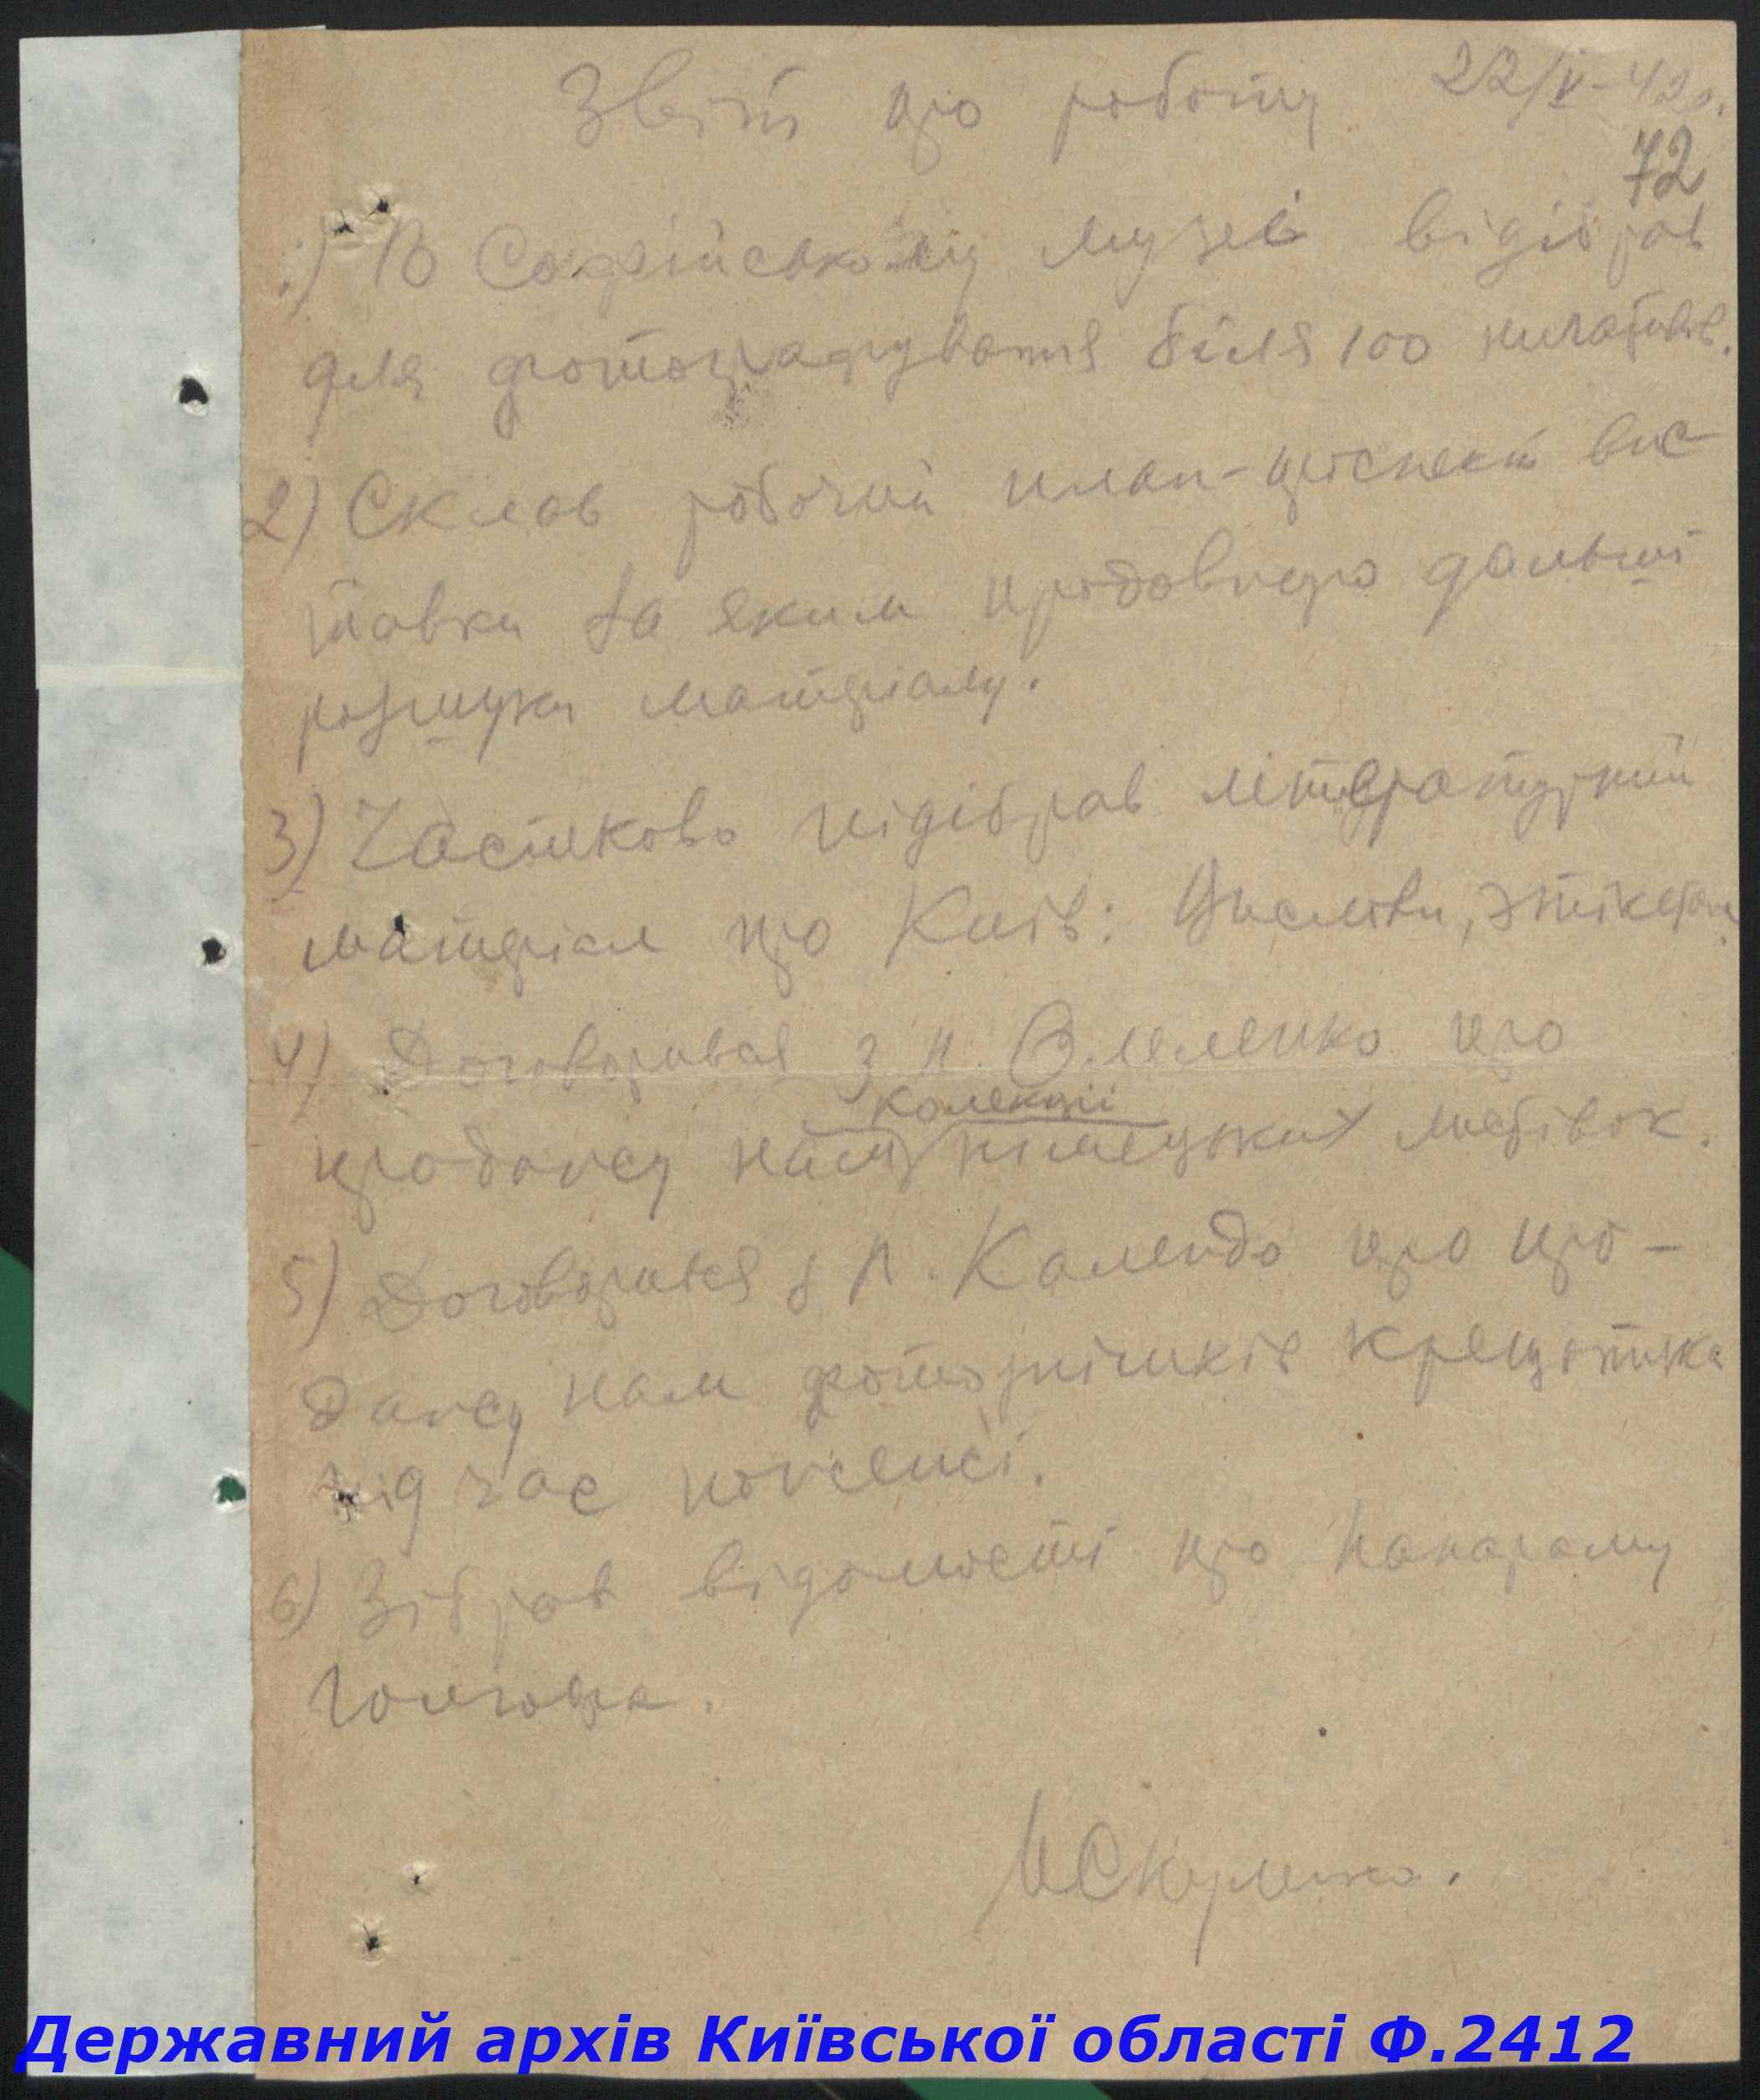 Звіт про роботу 22/V-42р.
72
1) В Софійському музеї відібрав
для фотографування біля 100 негативів.
2) Склав робочий план-проспект вис-
тавки за яким продовжую дальші
розшуки матеріалу.
3) Частково підібрав літературний
матеріал про Київ: Вислови, этікетаж
4) Договорився з п. Омеленко про
колекції
продажу нам німецьких листівок.
5) Договорився з п. Календо про про-
дажу нам фотознімків Крещатика
під час пожежі.
6) Зібрав відомості про панораму
Голгофа.
Державний архів Київської області Ф.2412